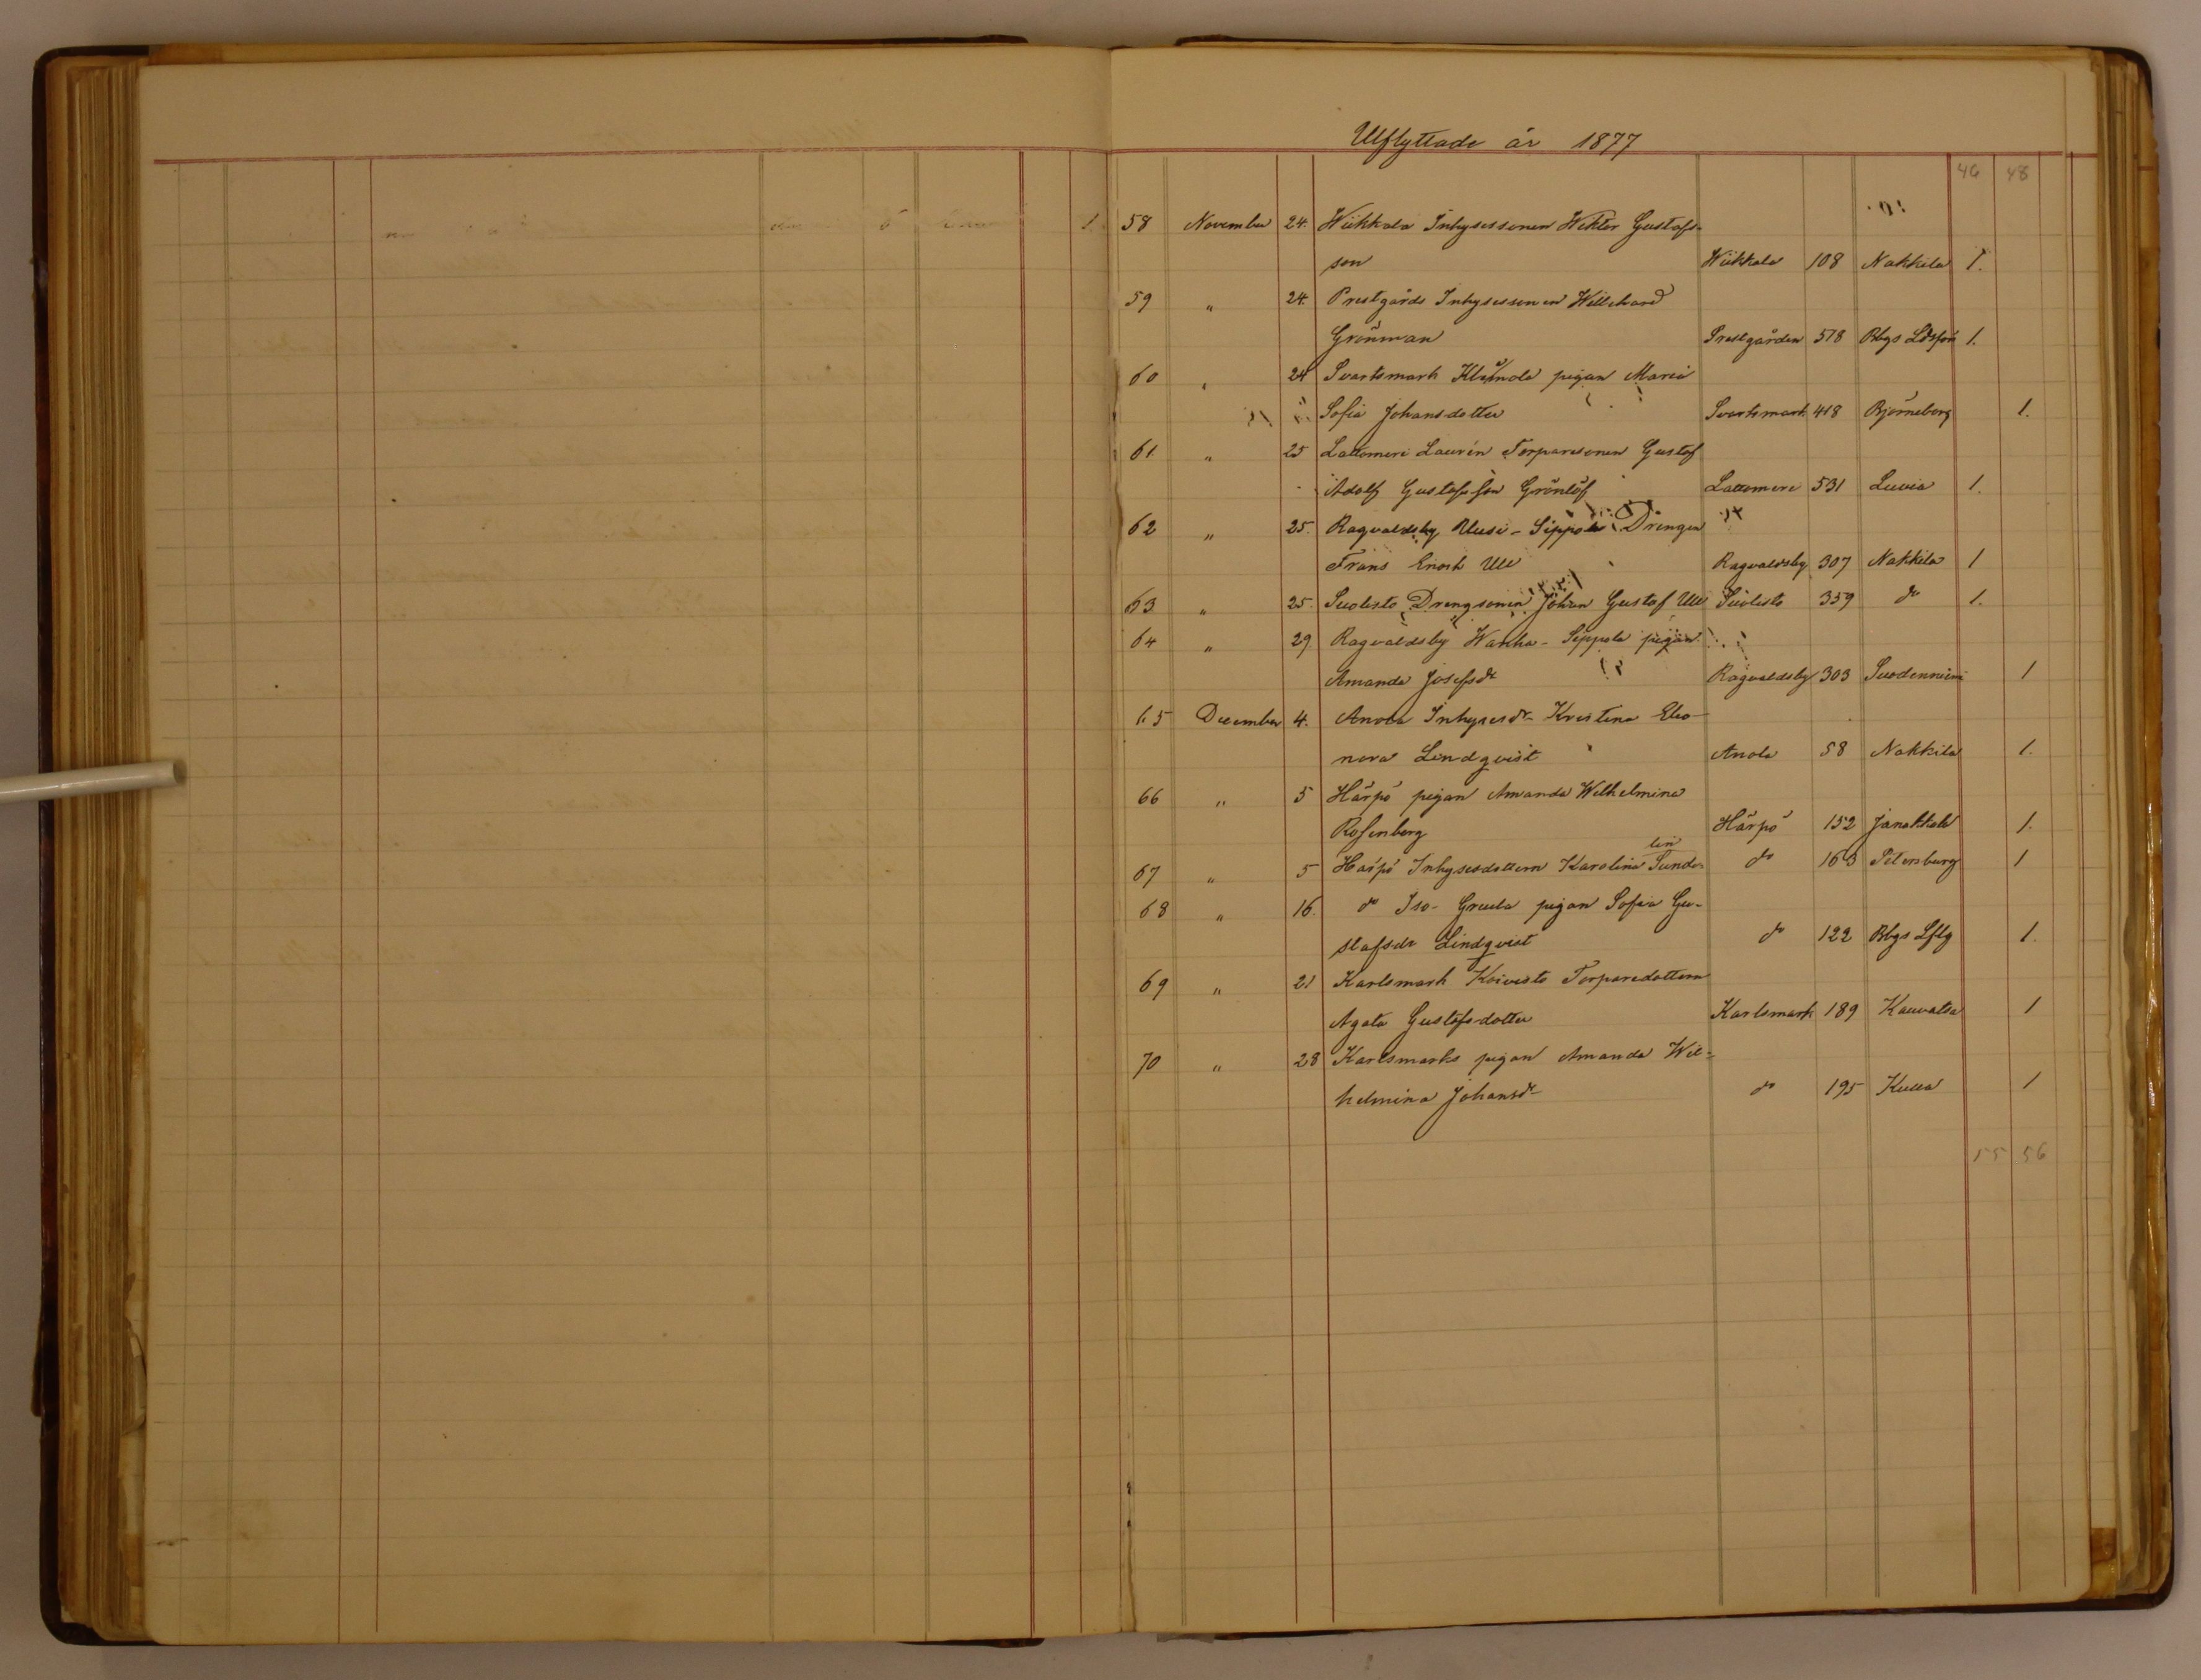 Utflyttade år 1877
46 48
58 November 24. Wiikkala Inhysessonen Wiktor Gustafs-
son Wiikkala 108 Nakkila 1.
59 " 24. Prestgårds Inhysessonen Willehard
Grönman Prestgården 578 Bbgs Ldsför 1.
60 " 24 Svartsmark pigan Maria
Sofia Johansdotter Svartsmark 418 Björneborg 1.
61 " 25 Lattomeri Laurén Torparesonen Gustaf
Adolf Gustafsson Grönlöf Lattomeri 531 Luvia 1.
62 " 25. Ragvaldsby Uusi-Sippola Drengen
Frans Enok Ull Ragvaldsby 307 Nakkila 1
63 " 25. Suolisto Drengsonen Johan Gustaf Ull Suolisto 359 do 1.
64 " 29 Ragvaldsby Wanha-Seppola pigan
Amanda Josefsdr Ragvaldsby 303 Suodenniemi 1
65 December 4. Anola Inhysesdr Kristina Eleo-
nora Lindqvist Anola 58 Nakkila 1.
66 " 5 Härpö pigan Amanda Wilhelmina
Rosenberg Härpö 152 Janakkala 1.
lin
67 " 5 Härpö Inhysesdottern Karolina Sunde- do 163 Petersburg 1
68 " 16. do Iso-Gruula pigan Sofia Gu-
stafsdr Lindqvist do 122 Bbgs Lflg 1.
69 " 21 Karlsmark Koivisto Torparedottern
Agata Gustafsdotter Karlsmark 189 Kauvatsa 1
70 " 28 Karlsmarks pigan Amanda Wil-
helmina Johansdr do 195 Kulla 1
55 56